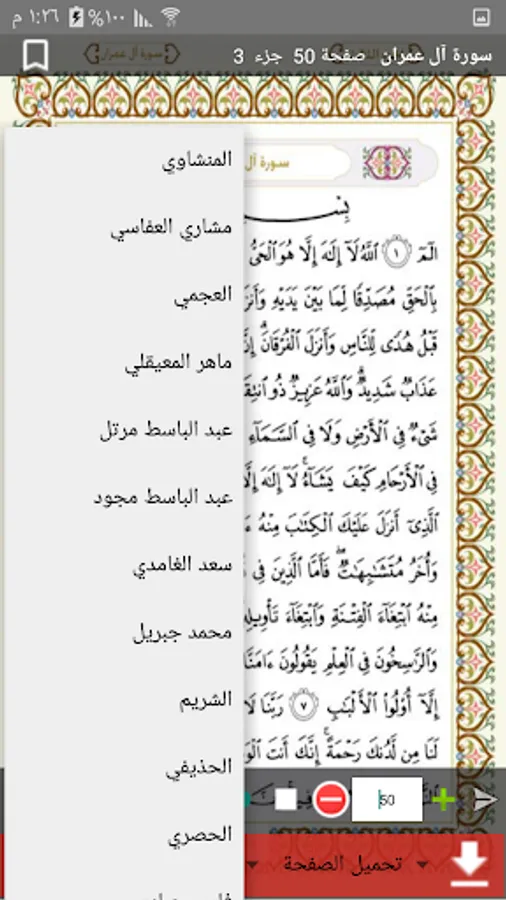 ١:٢٦ م ١٠٠%
سورة آل عمران صفحة 50 جزء 3
سورة آل عمران
المنشاوي
مشاري العفاسي
العجمي
ماهر المعيقلي
عبد الباسط مرتل
عبد الباسط مجود
سعد الغامدي
محمد جبريل
الشريم
الحذيفي
الحصري
سورة آل
بِسْـ
الٓمٓ ١ ٱللَّهُ لَآ إِلَٰهَ إِلَّا هُوَ ٱلْحَىُّ
بِٱلْحَقِّ مُصَدِّقًا لِّمَا بَيْنَ يَدَيْهِ وَأَنزَلَ
قَبْلُ هُدًى لِّلنَّاسِ وَأَنزَلَ ٱلْفُرْقَانَ إِنَّ
عَذَابٌ شَدِيدٌ وَٱللَّهُ عَزِيزٌ ذُو ٱنتِقَا
شَىْءٌ فِى ٱلْأَرْضِ وَلَا فِى ٱلسَّمَآءِ
فِى ٱلْأَرْحَامِ كَيْفَ يَشَآءُ لَآ إِلَٰهَ إِلَّا
ٱلَّذِىٓ أَنزَلَ عَلَيْكَ ٱلْكِتَٰبَ مِنْهُ ءَا
وَأُخَرُ مُتَشَٰبِهَٰتٌ فَأَمَّا ٱلَّذِينَ فِى
مِنْهُ ٱبْتِغَآءَ ٱلْفِتْنَةِ وَٱبْتِغَآءَ تَأْوِيلِهِ
وَٱلرَّٰسِخُونَ فِى ٱلْعِلْمِ يَقُولُونَ ءَامَنَّا
إِلَّآ أُو۟لُوا۟ ٱلْأَلْبَٰبِ ٧ رَبَّنَا لَا
لَنَا مِن لَّدُنكَ رَحْمَةً إِنَّكَ أَنتَ ٱلْوَ
50
تحميل الصفحة